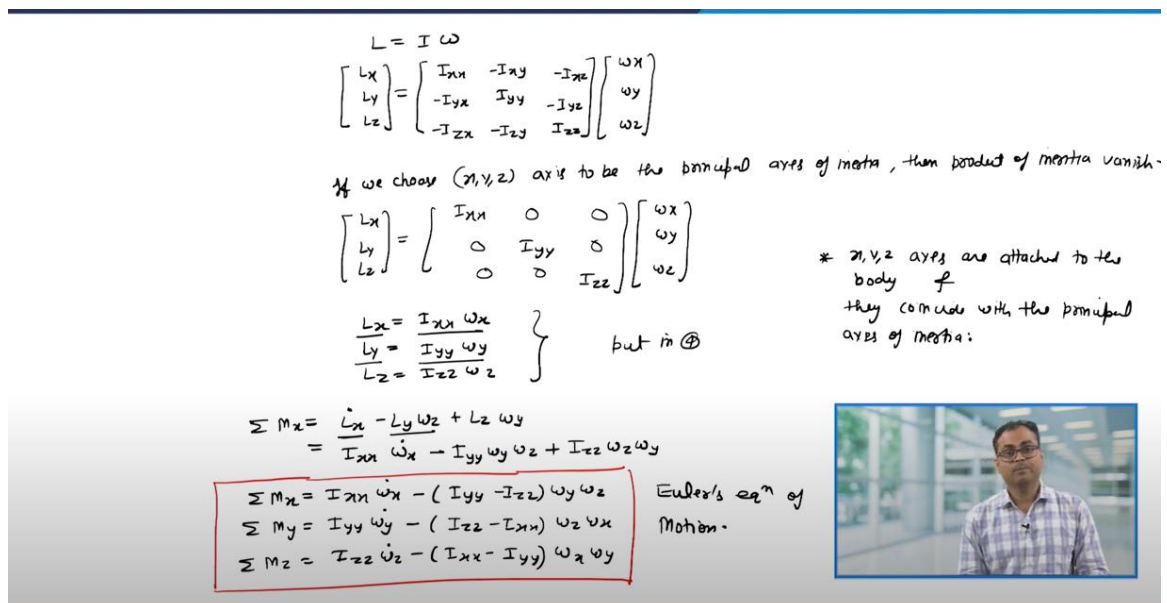 L = I ω
[Lx Ly Lz] = [Ixx -Ixy -Ixz
-Iyx Iyy -Iyz
-Izx -Izy Izz] [ωx ωy ωz]
If we choose (x,y,z) axis to be the principal axes of inertia, then product of inertia vanish-
[Lx Ly Lz] = [Ixx 0 0
0 Iyy 0
0 0 Izz] [ωx ωy ωz]
* x,y,z axes are attached to the
body &
they coincide with the principal
axes of inertia:
Lx = Ixx ωx
Ly = Iyy ωy
Lz = Izz ωz
} put in ④
Σ Mx = L̇x - Ly ωz + Lz ωy
= Ixx ω̇x - Iyy ωy ωz + Izz ωz ωy
Σ Mx = Ixx ω̇x - (Iyy - Izz) ωy ωz
Σ My = Iyy ω̇y - (Izz - Ixx) ωz ωx
Σ Mz = Izz ω̇z - (Ixx - Iyy) ωx ωy
Euler's eqⁿ of
Motion.